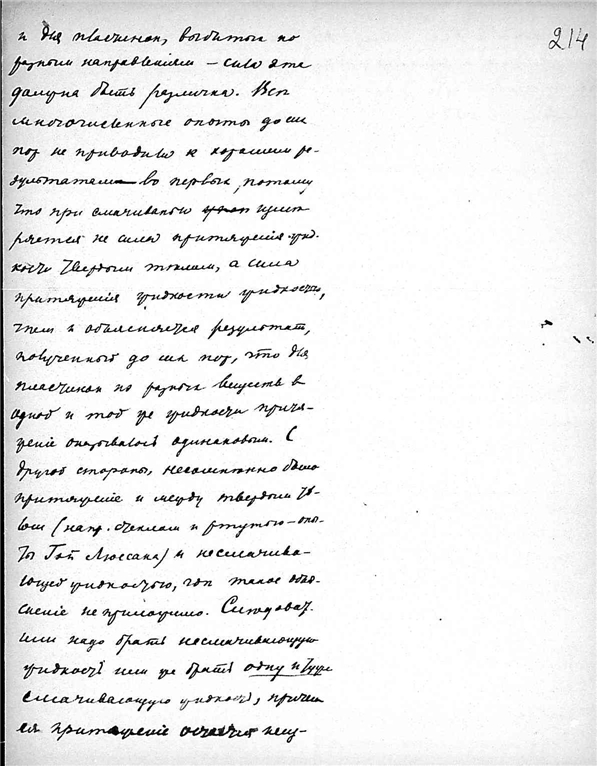 214
и для пластинок, выбитых по
разным направлениям – сила эта
должна быть различна. Все
многочисленные опыты до сих
пор не приводили к хорошим ре-
зультатам во первых, потому
что при смачивании изме
ряется не сила притяженія жид-
кости твердым телом, а сила
притяженія жидкости жидкостью,
чем и объясняется результат,
полученный до сих пор, что для
пластинок из разных веществ в
одной и той же жидкости притя-
женіе оказывалось одинаковым. С
другой стороны, несомненно было
притяженіе и между твердым те-
лом (напр. стеклом и ртутью – опы-
ты Гей Люссака) и несмачива-
ющей жидкостью, где такое объя-
снение не приложимо. Следоват.
или надо брать несмачивающую
жидкость или же брать одну и ту же
смачивающую жидкость, причем
ея притяженіе останется неиз-